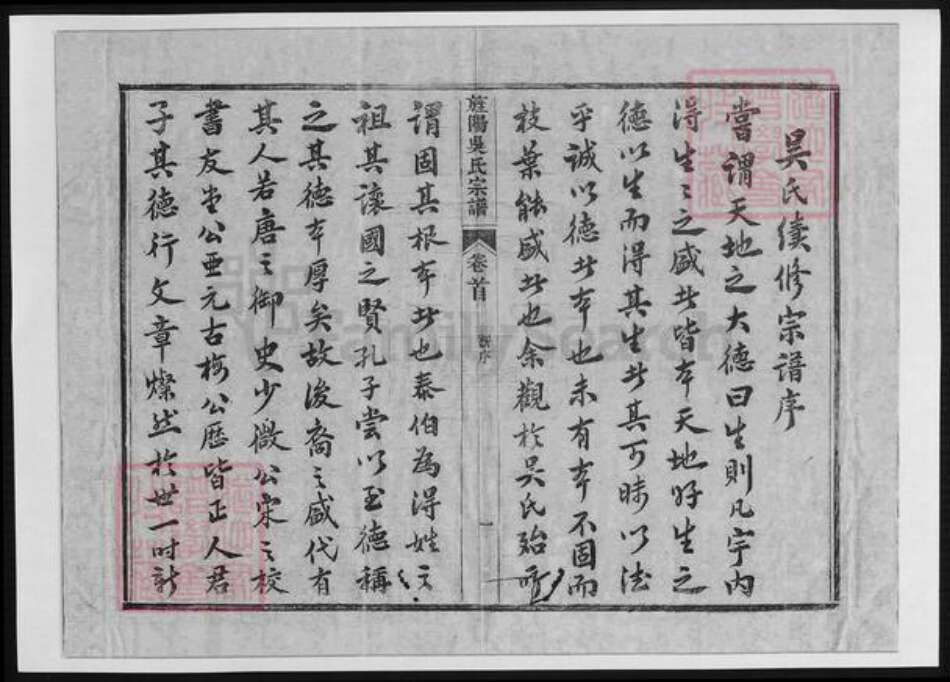 吳氏續修宗譜序
嘗謂天地之大德曰生則凡宇內
得生生之盛者皆本天地好生之
德以生而得其生者其可昧以法
乎誠以德者本也未有本不固而
枝葉能盛者也余觀於吳氏殆所
旌陽吳氏宗譜
卷首
新序
一
謂固其根本者也泰伯為得姓之
祖其讓國之賢孔子嘗以至德稱
之其德本厚矣故後裔之盛代有
其人若唐之御史少微公宋之校
書友堂公亞元古梅公歷皆正人君
子其德行文章燦然於世一時新
FamilySearch